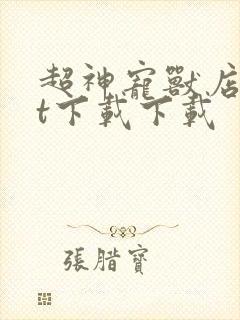 超神寵獸店
t下載下載
張腊寶